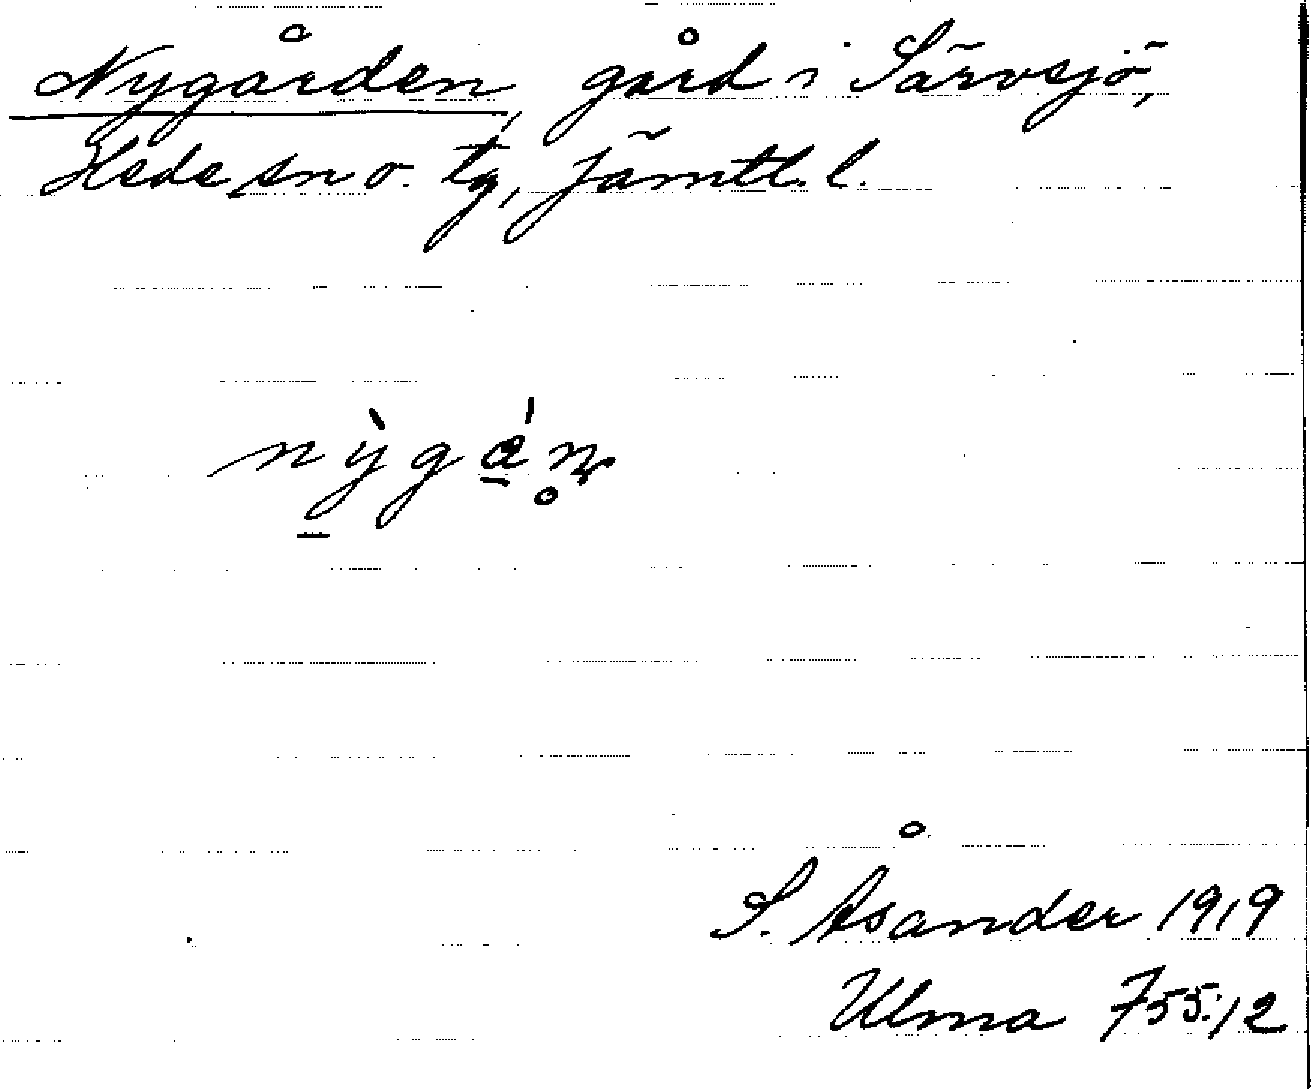 Nygården, gård i Särvsjö,
Hede sn o. tg, Jämtl. l.
S. Åsander 1919
Ulma 755:12